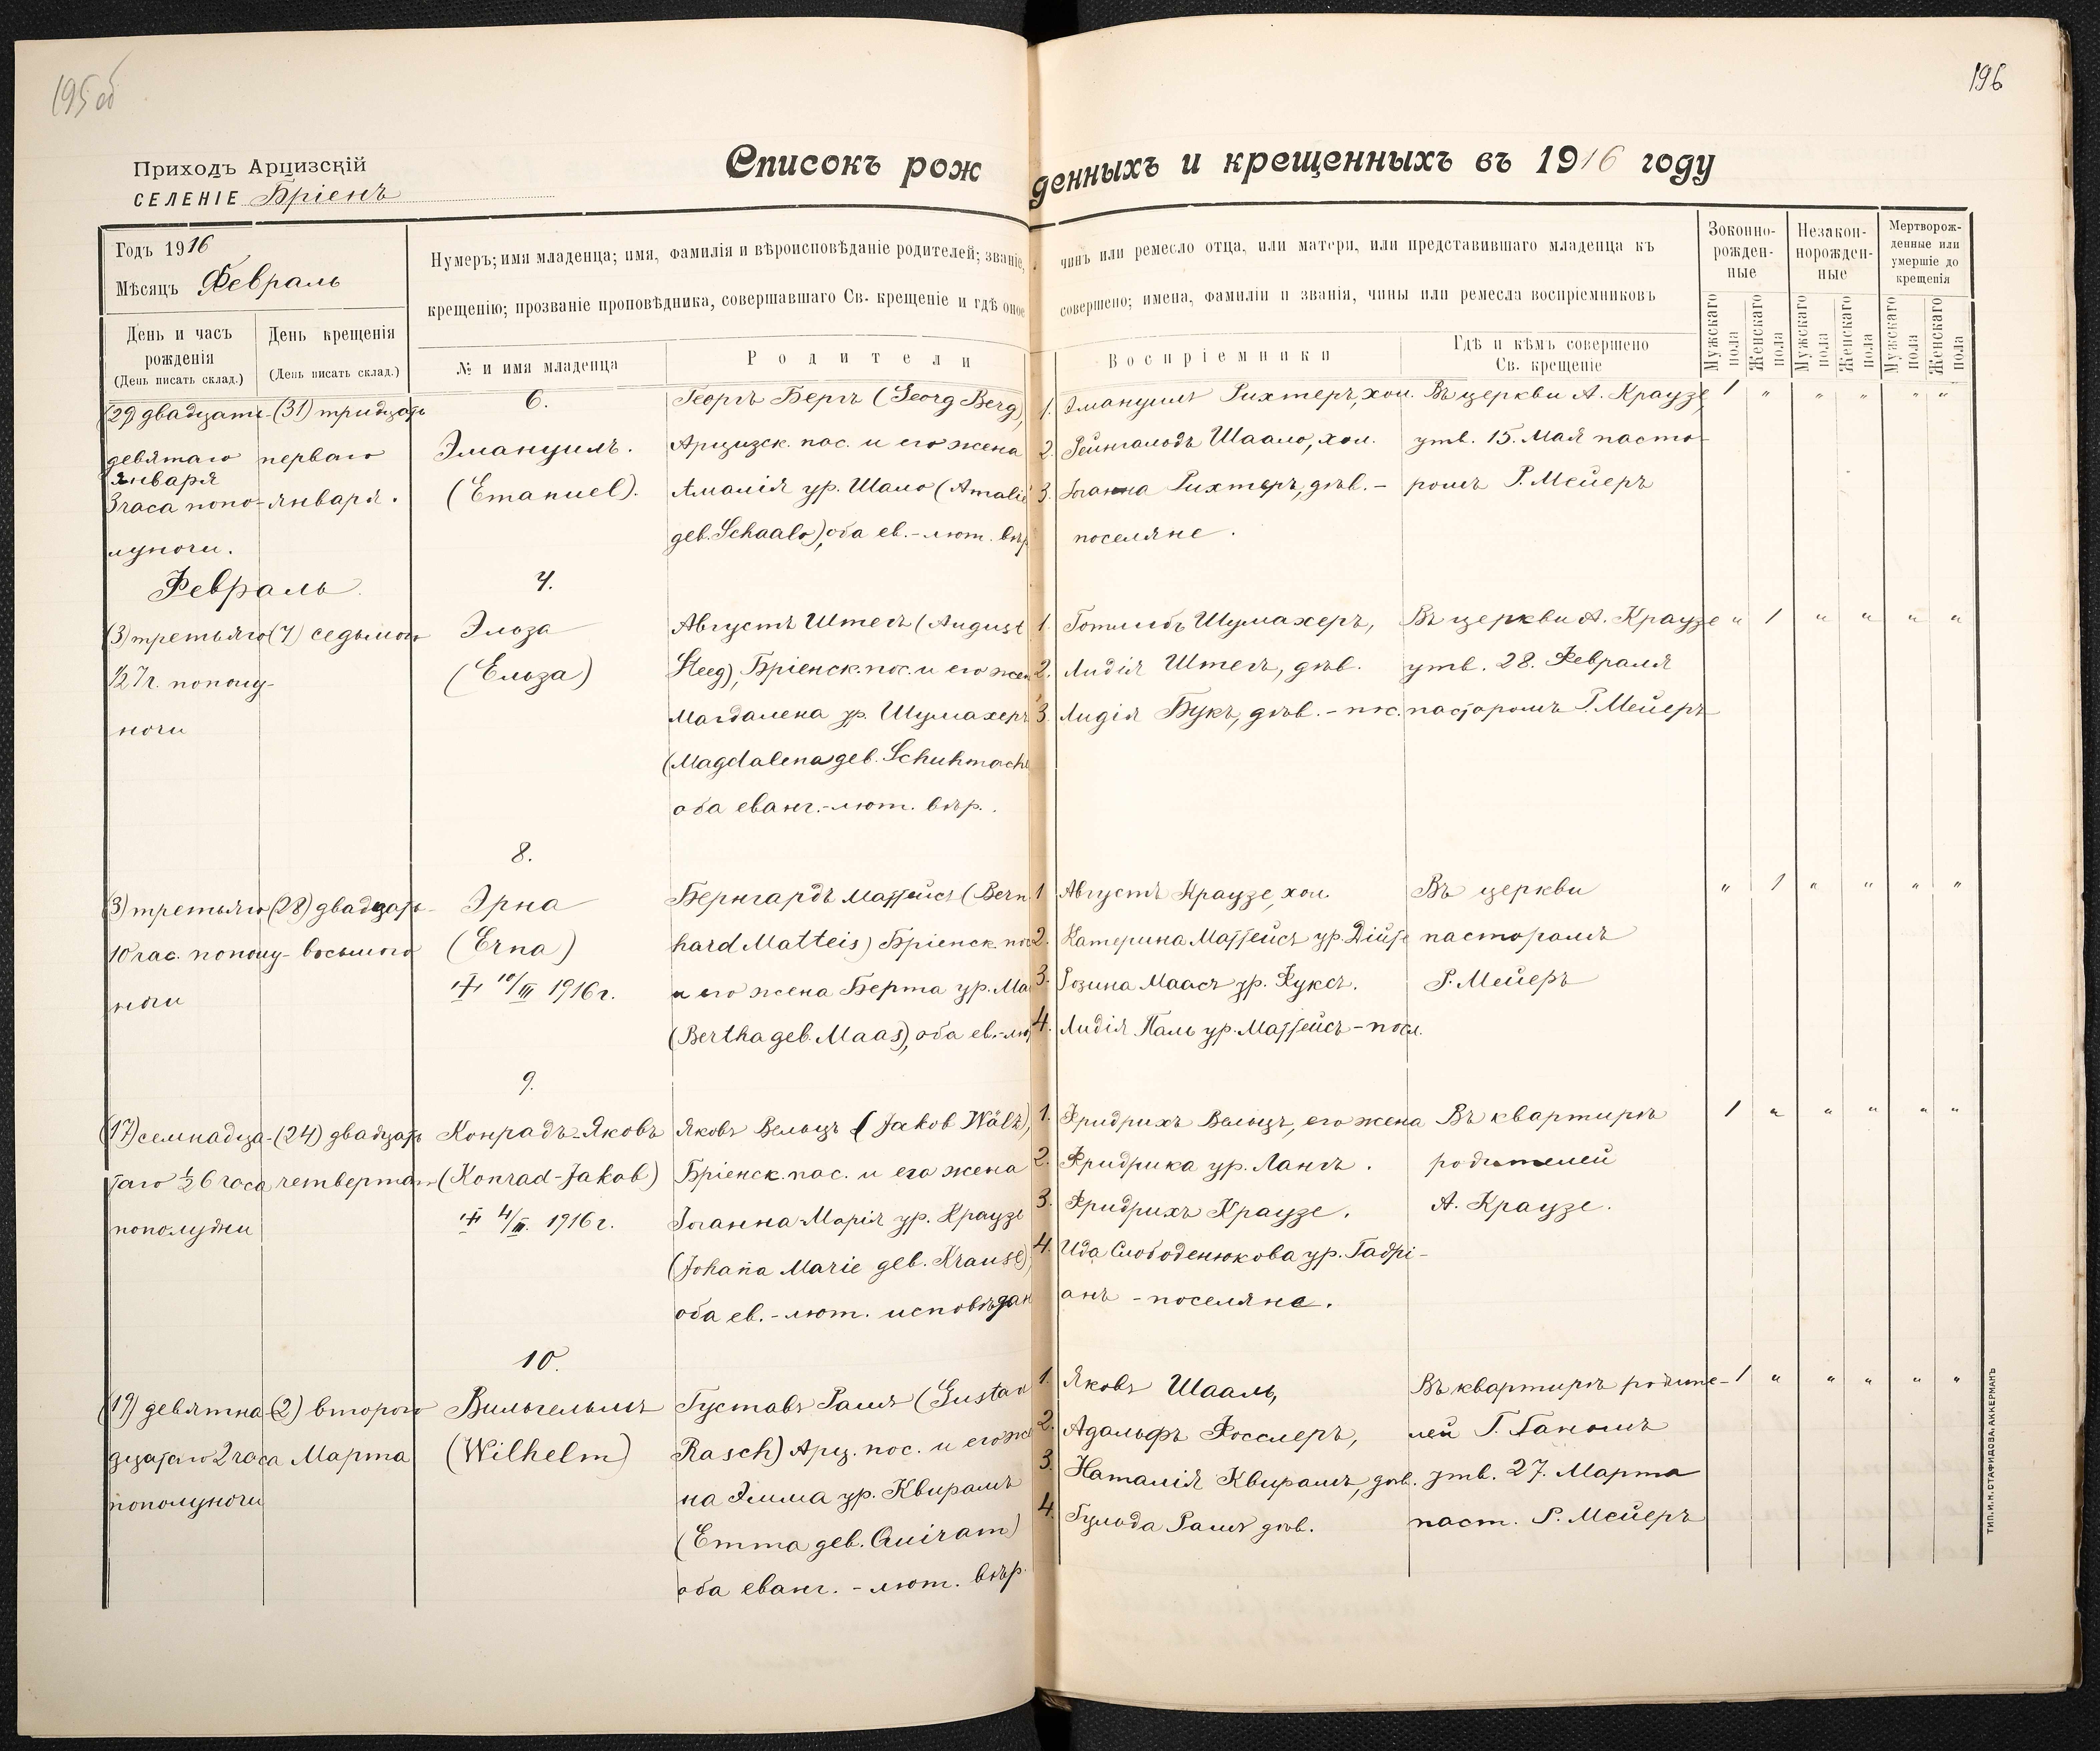 195 об
196
Приходъ Арцизскій
СЕЛЕНІЕ Бріенъ
Списокъ рожденныхъ и крещенныхъ въ 1916 году
Годъ 1916
Мѣсяцъ Февраль
День и часъ рожденія
(День писать склад.)
День крещенія
(День писать склад.)
Нумеръ; имя младенца; имя, фамилія и вѣроисповѣданіе родителей; званіе, чинъ или ремесло отца, или матери, или представившаго младенца къ
крещенію; прозваніе проповѣдника, совершавшаго Св. крещеніе и гдѣ оное совершено; имена, фамиліи и званія, чины или ремесла воспріемниковъ
№ и имя младенца
Родители
Воспріемники
Гдѣ и кѣмъ совершено
Св. крещеніе
Зоконно-
рожден-
ные
Незакон-
норожден-
ные
Мертворож-
денные или
умершіе до
крещенія
Мужскаго пола
Женскаго пола
Мужскаго пола
Женскаго пола
Мужскаго пола
Женскаго пола
(29) двадцать
девятаго
Января
3 часа попо-
луночи.
(31) тридцать
перваго
Января.
6.
Эмануилъ.
(Emanuel).
Георгъ Бергъ (Georg Berg),
Арцизск. пос. и его жена
Амалія ур. Шало (Amalie
геб. Schaalo), оба ев.-лют. вѣр.
1. Эмануилъ Рихтеръ, хол.
2. Рейнгольдъ Шаало, хол.
3. Іоганна Рихтеръ, дѣв. -
поселяне.
Въ церкви А. Краузе,
утв. 15. Мая пасто-
ромъ Р. Мейеръ
1 " " " " "
Февраль
(3) третьяго
1/2 7 ч. пополу-
ночи
(7) седьмого
7.
Эльза
(Ельза)
Августъ Штегъ (August
Steeg), Бріенск. пос. и его жен
Магдалена ур. Шумахеръ
(Magdalena geb. Schuhmach
оба еванг.-лют. вѣр.
1. Готлибъ Шумахеръ,
2. Лидія Штегъ, дѣв.
3. Лидія Букъ, дѣв. - пос.
Въ церкви А. Краузе
утв. 28. Февраля
пасторомъ Р. Мейеръ
" 1 " " " "
(3) третьяго
10 час. пополу-
ночи
(28) двадцать
восьмого
8.
Эрна
(Erna)
10/III 1916 г.
Бернгардъ Маттейсъ (Bern
hard Matteis) Бріенск. пос
и его жена Берта ур. Ма
(Bertha geb. Maas), оба ев.-лю
1 Августъ Краузе, хол.
2. Катерина Маттейсъ ур.
3. Розина Маасъ ур. Фуксъ.
4. Лидія Паль ур. Маттейсъ - посл.
Въ церкви
пасторомъ
Р. Мейеръ
" 1 " " " "
(17) семнадца-
таго 1/2 6 часа
пополудни
(24) двадцать
четверта-
9.
Конрадъ-Яковъ
(Konrad-Jakob)
4/III. 1916 г.
Яковъ Вельцъ (Jakob Wälz),
Бріенск. пос. и его жена
Іоганна Марія ур. Краузе
(Johana Marie geb. Krause),
оба ев.-лют. исповѣдан
1. Фридрихъ Вельцъ, его жена
2. Фридрика ур. Лангъ.
3. Фридрихъ Краузе.
4. Ида Слободенюкова ур. Гадрі-
анъ - поселяне.
Въ квартирѣ
родителей
А. Краузе.
1 " " " " "
(19) девятна-
дцатаго 2 часа
пополуночи
(2) второго
Марта
10.
Вильгельмъ
(Wilhelm)
Густавъ Рашъ (Gustav
Rasch) Арц. пос. и его же
на Эмма ур. Квирамъ
(Emma geb. Quiram)
оба еванг.-лют. вѣр.
1. Яковъ Шааль,
2. Адольфъ Фосслеръ,
3. Наталія Квирамъ, дѣв.
4. Гульда Рашъ дѣв.
Въ квартирѣ родите-
лей Г.
утв. 27. Марта
паст. Р. Мейеръ
1 " " " " "
ТИП. И. Н. СТАФИДОВА. АККЕРМАНЪ